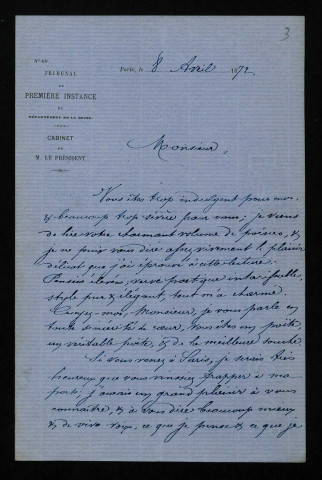 3
Paris, le 8 Avril 1872
TRIBUNAL
DE
PREMIÈRE INSTANCE
DU
DÉPARTEMENT DE LA SEINE.
CABINET
DE
M. LE PRÉSIDENT.
Monsieur,
Vous êtes trop indulgent pour moi
& beaucoup trop sévère pour vous ; je viens
de lire votre charmant volume de poésies, &
je ne puis vous dire assez vivement le plaisir
délicat que j'ai éprouvé à cette lecture.
Pensées élevées, verve poétique intarissable,
style pur & élégant, tout m'a charmé.
Croyez-moi, Monsieur, je vous parle en
toute sincérité de cœur, vous êtes un poète,
un véritable poète, & de la meilleure souche
Si vous venez à Paris, je serais très
heureux que vous vinssiez frapper à ma
porte ; j'aurais un grand plaisir à vous
connaître, & à vous dire beaucoup mieux
& de vive voix, ce que je pense & ce que je